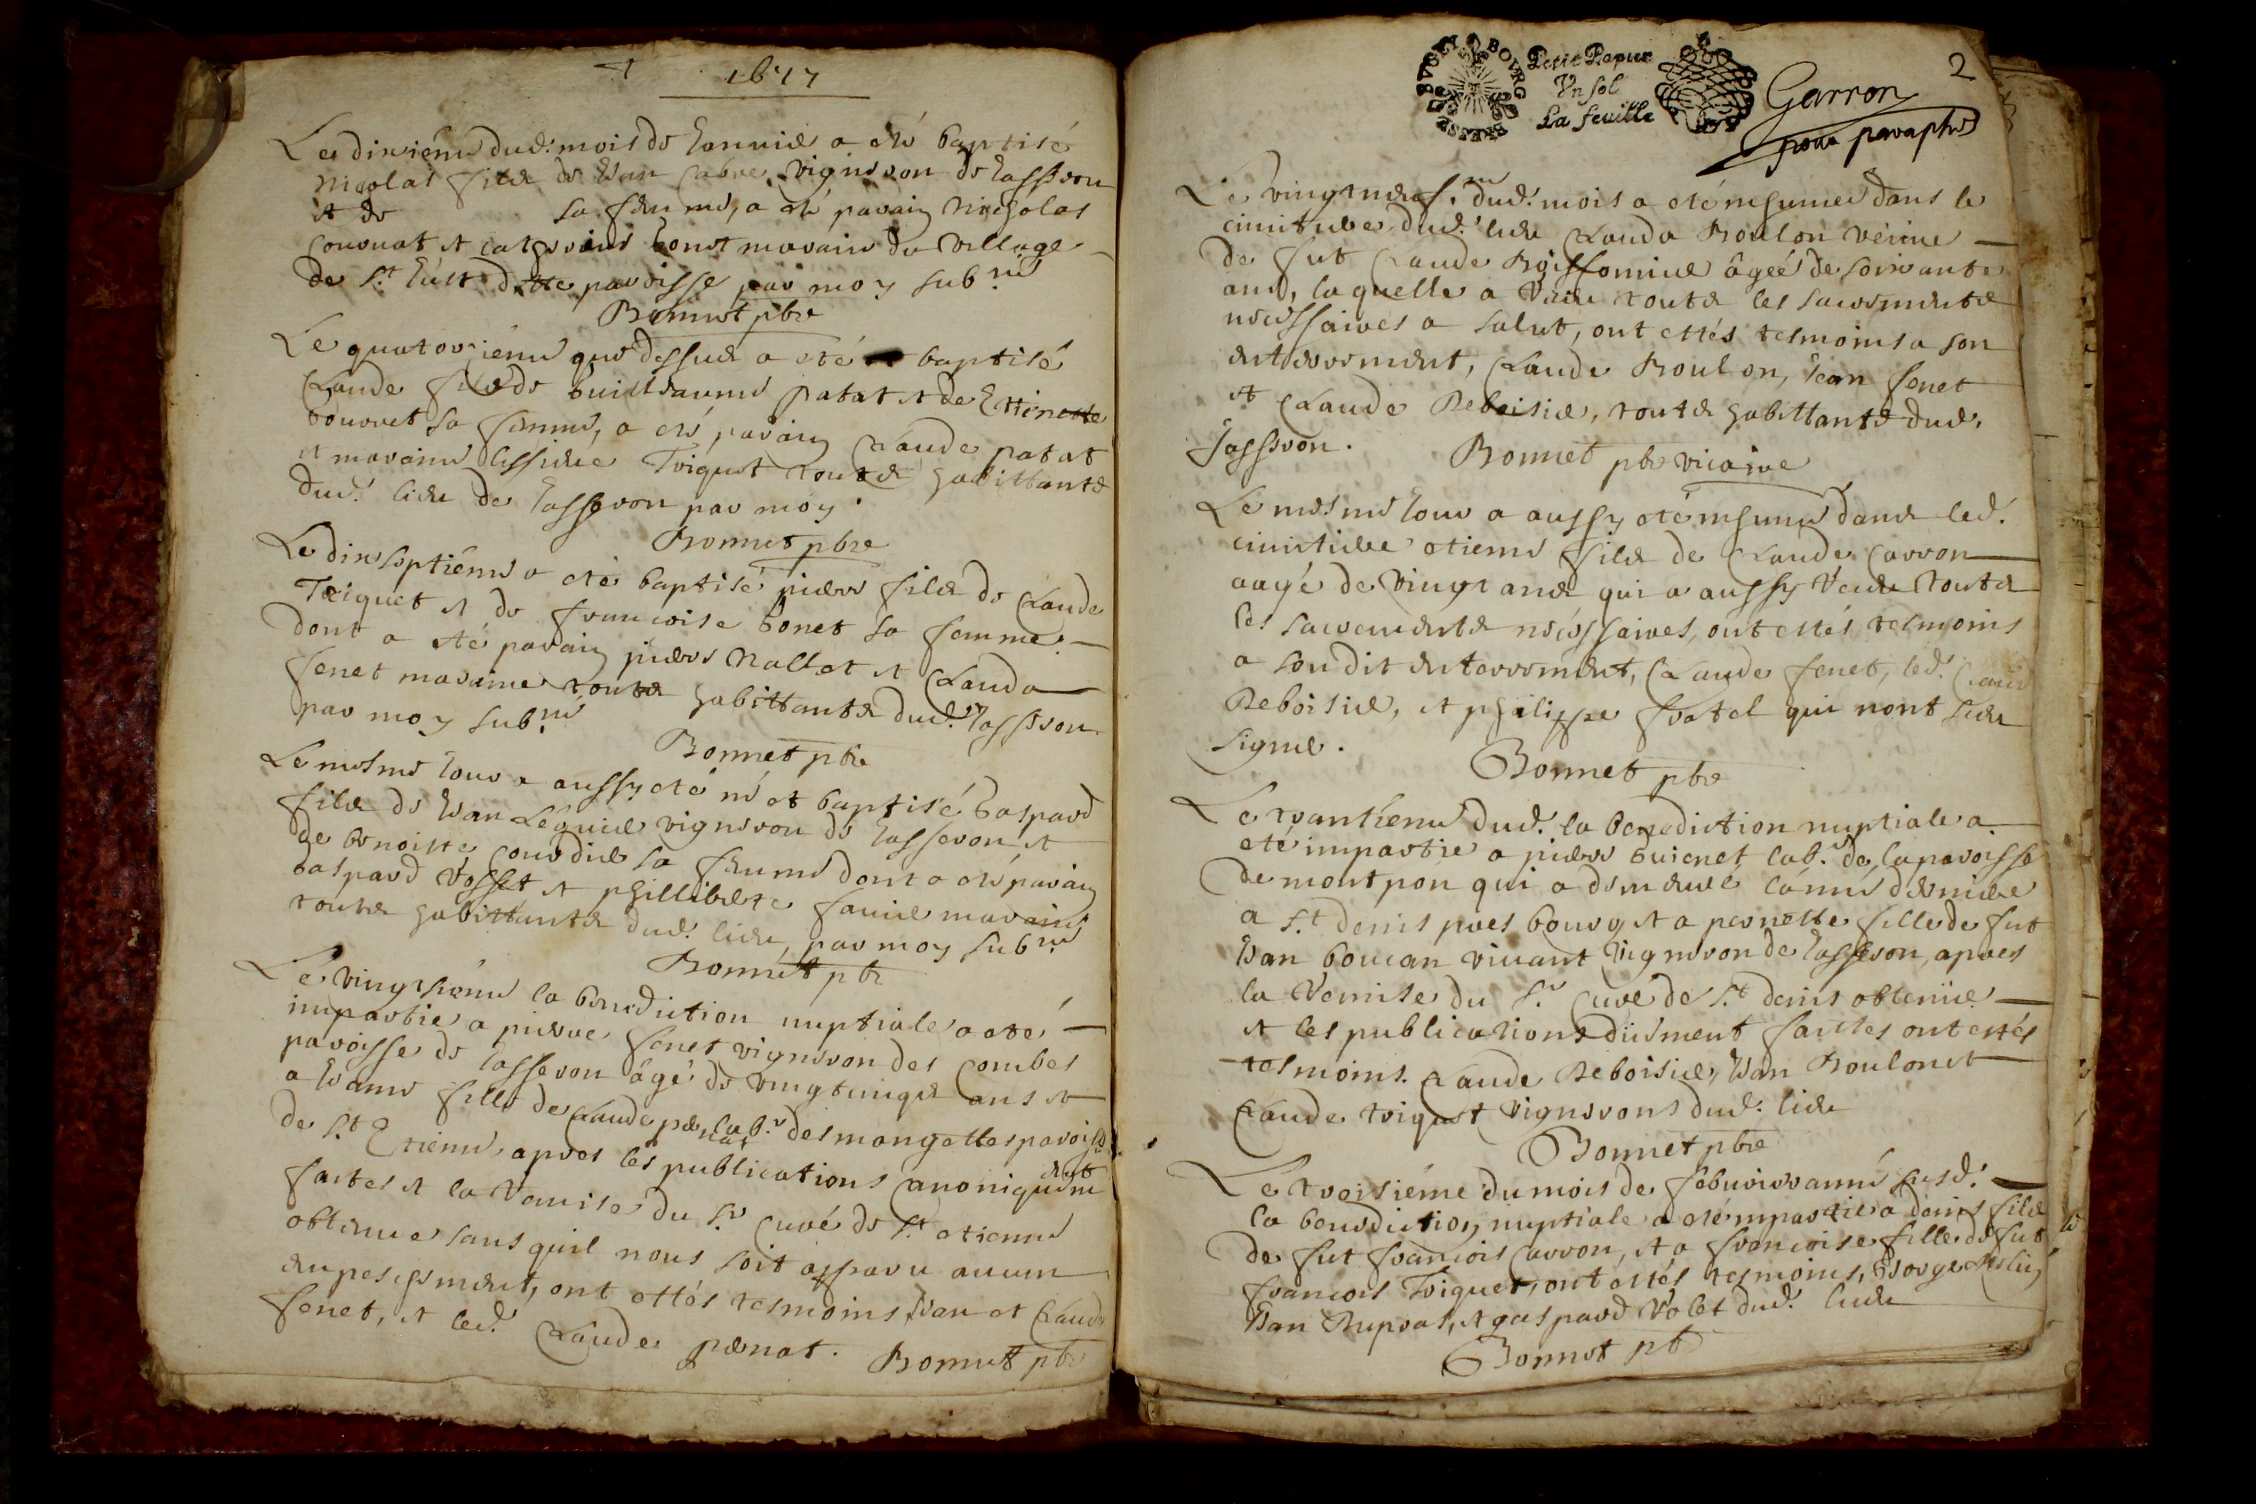 1677
Le dixiéme dud. mois de Janvier a eté baptisé
nicolas filz de Jean vigneron de Jasseron
et de sa femme, a eté parain nicholas
et catherine bonet maraine du village
de St. Just ditte paroisse par moy subné
Bonnet pbre
Le quatorziéme que dessus a eté baptisé
Claude filz de Guillaume patat et de Ettienette
bouvet sa femme, a eté parain Claude patat
et maraine Triquet toutz habittantz
dud. lieu de Jasseron par moy
Bonnet pbre
Le dixseptiéme a eté baptisé pierre filz de Claude
Triquet et de francoise bonet sa femme
dont a eté parain pierre Nallet et Clauda
fenet maraine toutz habittantz dud. Jasseron
par moy subné
Bonnet pbre
Le mesme Jour a aussy eté né et baptisé Gaspard
filz de Jean Léguier vigneron de Jasseron et
de benoiste sa femme dont a eté parain
Gaspard Vosset et philliberte favier maraine
toutz habittantz dud. lieu, par moy subné
Bonnét pbr
Le vingtiéme la benediction nuptiale a eté
impartie a pierre fenet vigneron des Combes
paroisse de Jasseron âgé de vingtcinqz ans et
a Jeanne fille de Claude pernat labr. des mangettes paroisse
de St. Etienne, apres les publications Canoniquement
faites et la remise du Sr Curé de St. etienne
obtenue sans quil nous soit apparu aucun
empeschement, ont ettés tesmoins Jean et Claude
fenet, et led. Claude pernat. Bonnet pbr
Petit Papier
Vn sol
La feuille
2
Garron
pour paraphe
Le vingtneufme. dud. mois a eté inhumée dans le
cimitiere dud. lieu Clauda Roulon véuve
de fut Claude âgeé de soixante
ans, laquelle a receu toutz les sacrementz
necessaires a salut, ont ettés tesmoins a son
enterrement, Claude Roulon, Jean fenet
et Claude Reboisier, toutz habittantz dud.
Jasseron. Bonnet pbr vicaire
Le mesme Jour a aussy eté inhumé dans led.
cimitiere etienne filz de Claude Carron
aagé de vingt ans qui a aussy receu toutz
les sacrementz necessaires, ont ettés tesmoins
a son dit enterrement, Claude fenet, led. Claude
Reboisier, et philippe fratel qui nont sceu
signer.
Bonnet pbr
Le trantiéme dud. la benediction nuptiale a
eté impartie a pierre Guienet labr. de la paroisse
de montpon qui a demeuré lánné derniere
a St. denis pres bourg et a pernette fille de fut
Jean boucan vivant vigneron de Jasseron, apres
la remise du Sr. Curé de St. denis obtenüe
et les publications düement faittes ont ettés
tesmoins. Claude Reboisier, Jean Roulon et
Claude triquet vignerons dud. lieu
Bonnet pbre
Le troisiéme du mois de febvrier année susd.
la benediction nuptiale a eté impartie a denis filz
de fut francois Carron, et a francoise fille de fut
francois Triquet, ont éttés tesmoins, George
Jean Dupras, et gaspard Volet dud. lieu
Bonnet pb